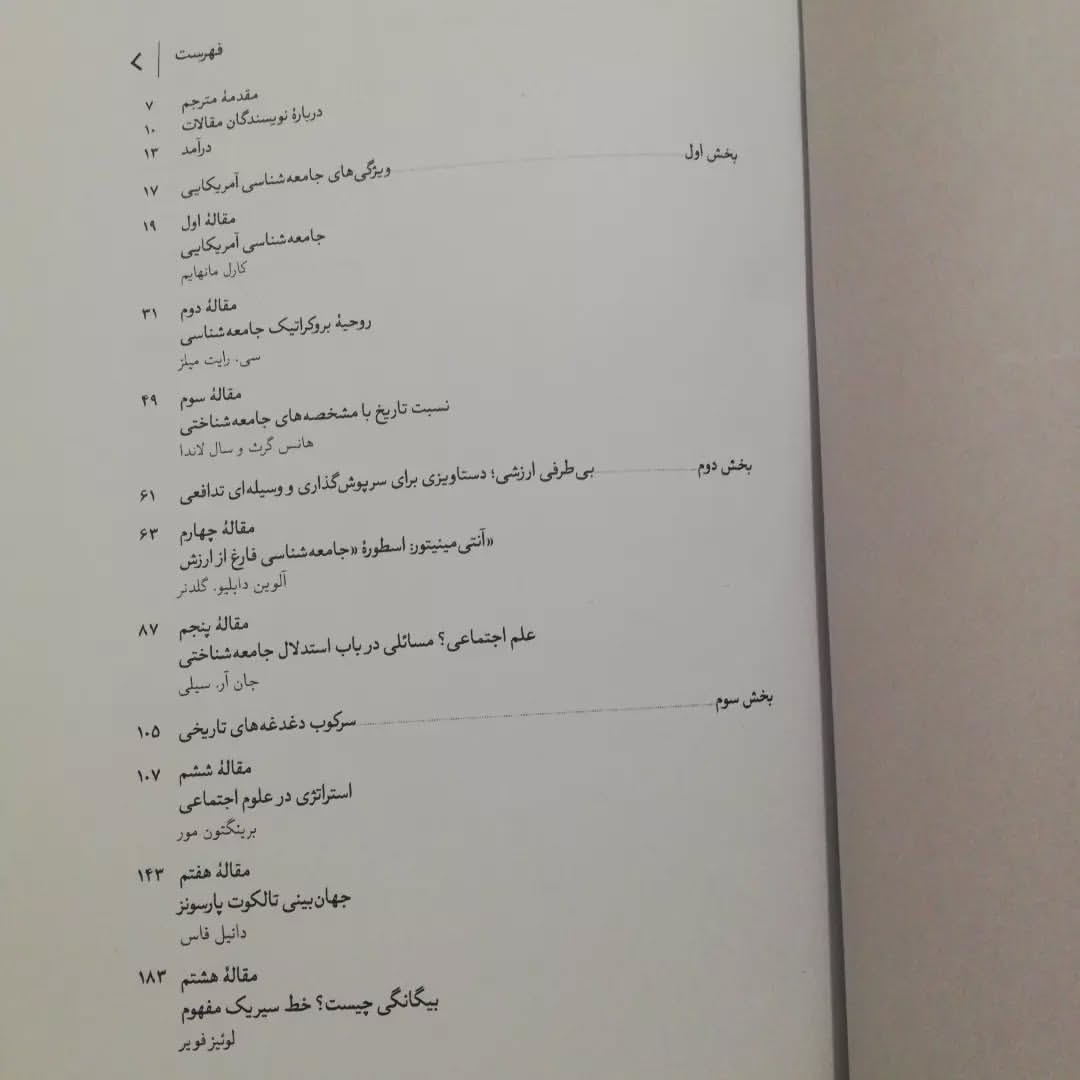 فهرست
مقدمهٔ مترجم ۷
دربارهٔ نویسندگان مقالات ۱۰
درآمد ۱۳
بخش اول ویژگی‌های جامعه‌شناسی آمریکایی ۱۷
مقالهٔ اول ۱۹
جامعه‌شناسی آمریکایی
کارل مانهایم
مقالهٔ دوم ۳۱
روحیهٔ بروکراتیک جامعه‌شناسی
سی. رایت میلز
مقالهٔ سوم ۴۹
نسبت تاریخ با مشخصه‌های جامعه‌شناختی
هانس گرث و سال لاندا
بخش دوم بی‌طرفی ارزشی؛ دستاویزی برای سرپوش‌گذاری و وسیله‌ای تدافعی ۶۱
مقالهٔ چهارم ۶۳
«آنتی‌مینیتور: اسطورهٔ «جامعه‌شناسی فارغ از ارزش
آلوین دابلیو. گلدنر
مقالهٔ پنجم ۸۷
علم اجتماعی؟ مسائلی در باب استدلال جامعه‌شناختی
جان آر. سیلی
بخش سوم سرکوب دغدغه‌های تاریخی ۱۰۵
مقالهٔ ششم ۱۰۷
استراتژی در علوم اجتماعی
برینگتون مور
مقالهٔ هفتم ۱۴۳
جهان‌بینی تالکوت پارسونز
دانیل فاس
مقالهٔ هشتم ۱۸۳
بیگانگی چیست؟ خط سیر یک مفهوم
لوئیز فویر